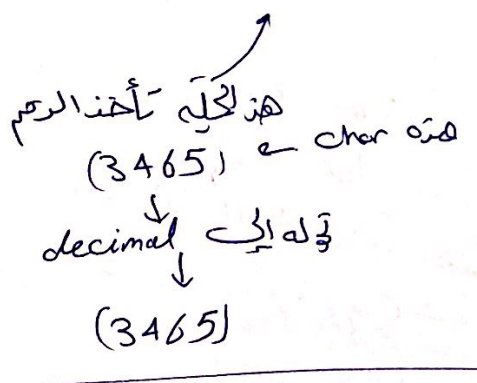 هذه العملية تأخذ الرقم
(3465) ← char هذه
تحوله إلى decimal
(3465)